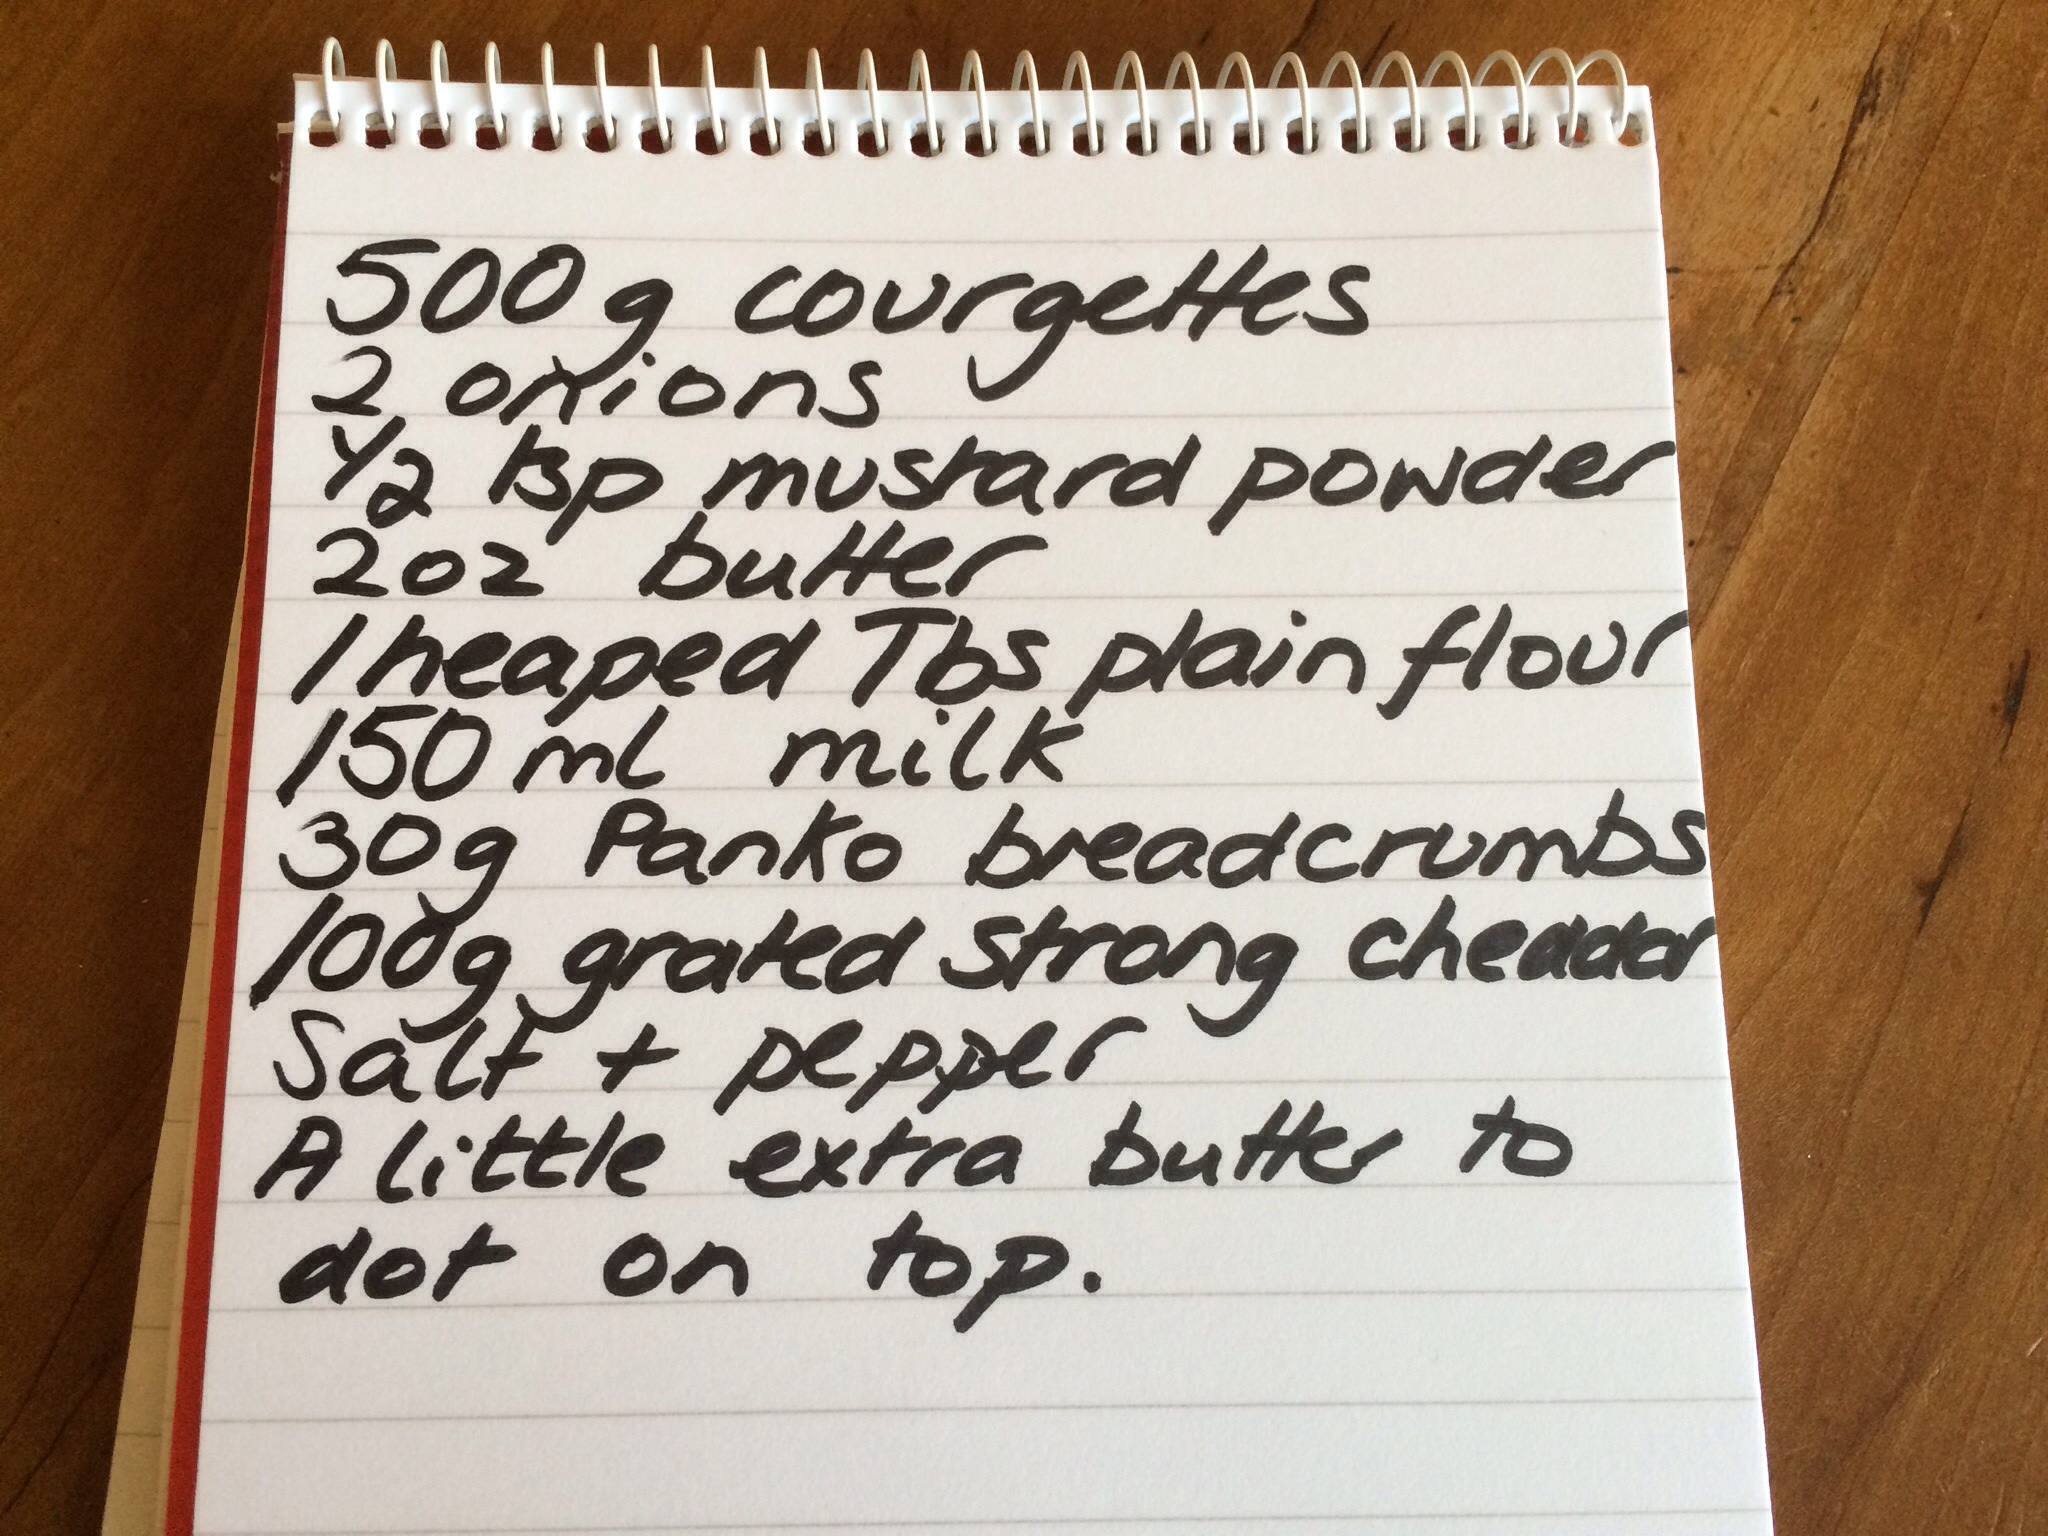 500g courgettes
2 onions
1/2 tsp mustard powder
2oz butter
1 heaped Tbs plain flour
150 ml milk
30g Panko breadcrumbs
100g grated strong cheddar
Salt + pepper
A little extra butter to
dot on top.